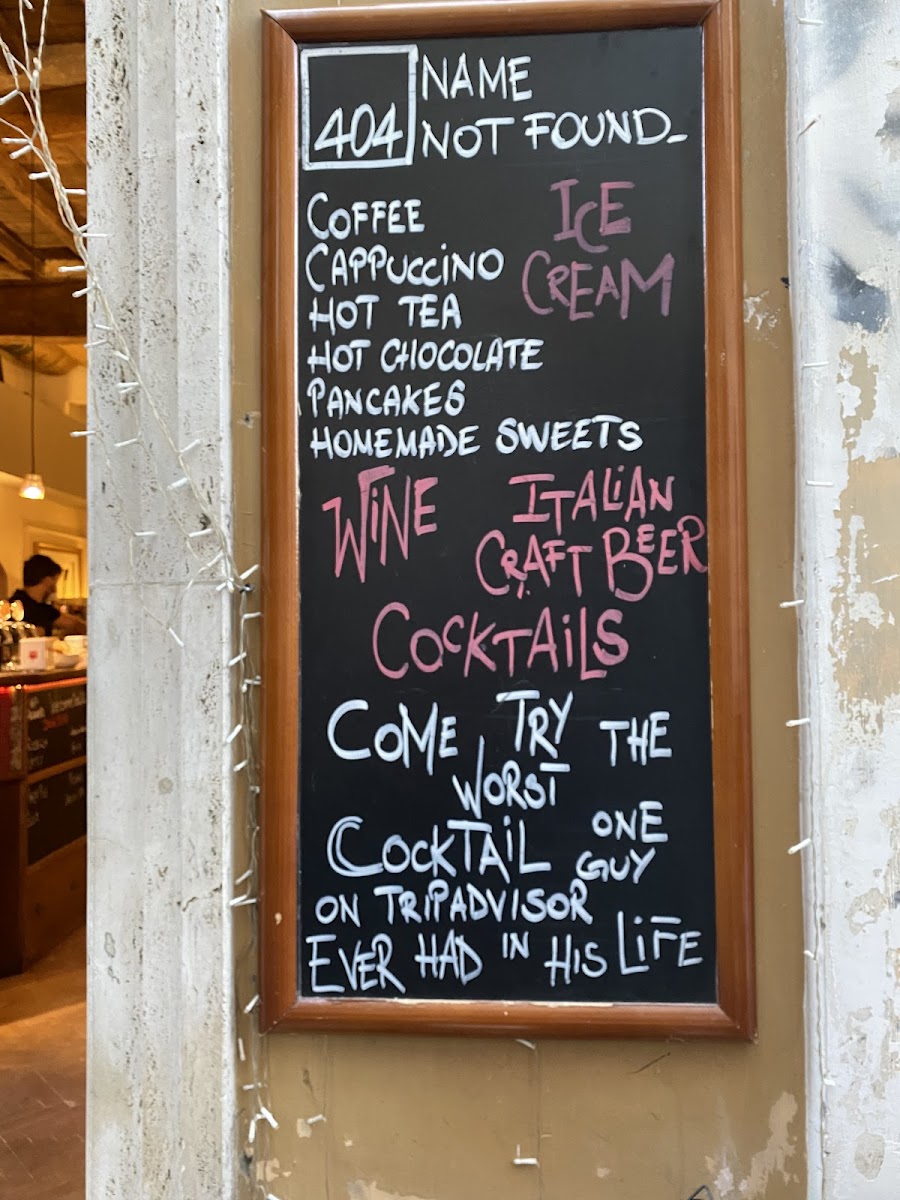 404 NAME
NOT FOUND_
COFFEE
CAPPUCCINO
HOT TEA
HOT CHOCOLATE
PANCAKES
HOMEMADE SWEETS
ICE
CREAM
WINE
ITALIAN
CRAFT BEER
COCKTAILS
COME TRY THE
WORST
COCKTAIL ONE
GUY
ON TRIPADVISOR
EVER HAD IN HIS LIFE